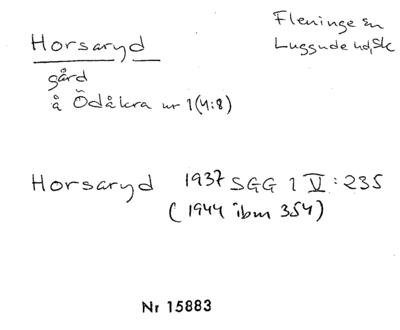 Horsaryd
gård
å Ödåkra nr 1(4:8)
Fleninge sn
Luggude hd, Sk
Horsaryd 1937 SGG 1 V : 235
(1944 ibm 354)
Nr 15883